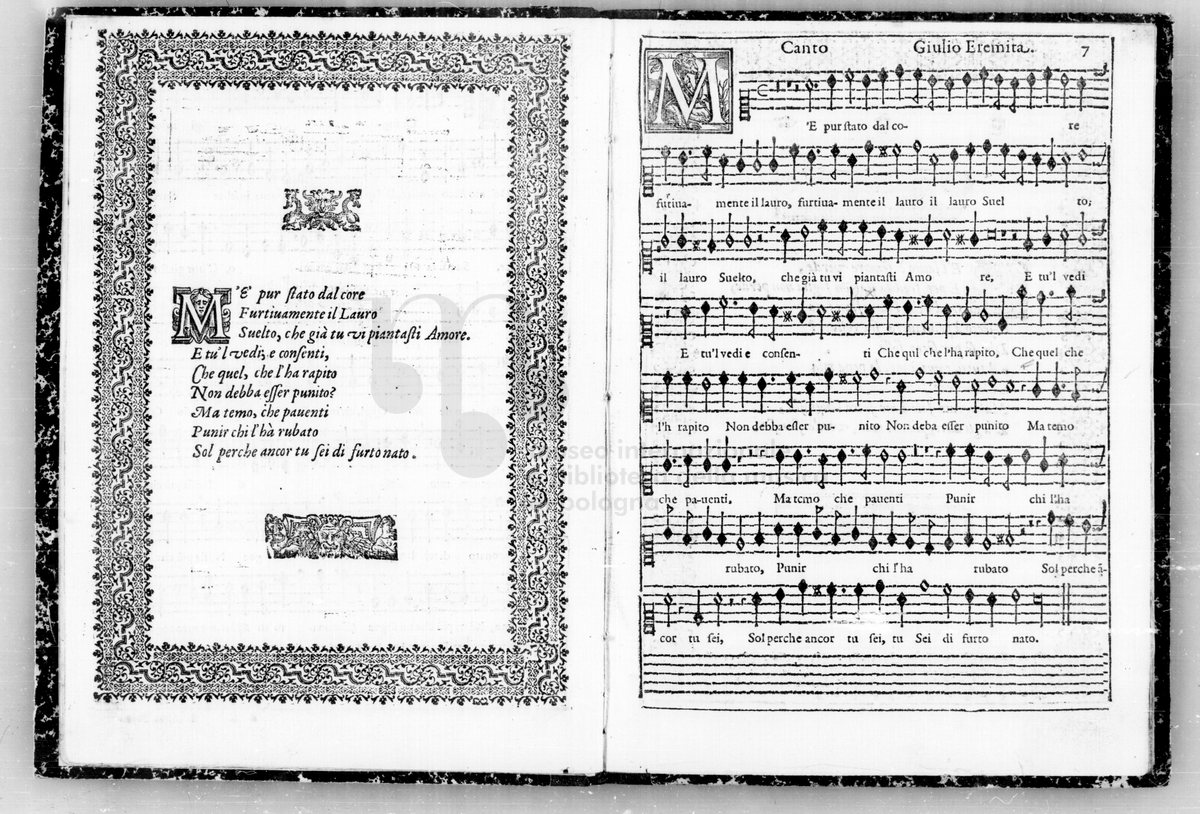 M'E' pur stato dal core
Furtiuamente il Lauro
Suelto, che già tu vi piantasti Amore.
E tu'l vedi, e consenti,
Che quel, che l'ha rapito
Non debba esser punito?
Ma temo, che pauenti
Punir chi l'hà rubato
Sol perche ancor tu sei di furto nato.
Canto Giulio Eremita. 7
M'E pur stato dal co- re
futiua- mente il lauro, furtiua- mente il lauro il lauro Suel to,
il lauro Suelto, che già tu vi piantasti Amo re, E tu'l vedi
E tu'l vedi e consen- ti Che qul che l'ha rapito, Che quel che
l'h rapito Non debba esser pu- nito Non deba esser punito Ma temo
che pa-uenti, Ma temo che pauenti Punir chi l'ha
rubato, Punir chi l'ha rubato Sol perche ã-
cor tu sei, Sol perche ancor tu sei, tu Sei di furto nato.